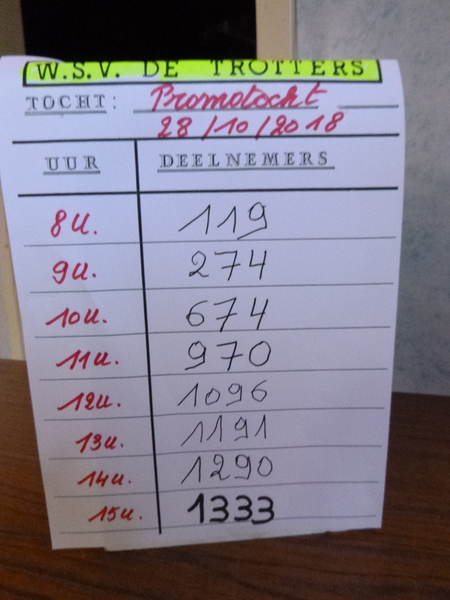 W.S.V. DE TROTTERS
TOCHT: Promotocht
28/10/2018
UUR DEELNEMERS
8u. 119
9u. 274
10u. 674
11u. 970
12u. 1096
13u. 1191
14u. 1290
15u. 1333